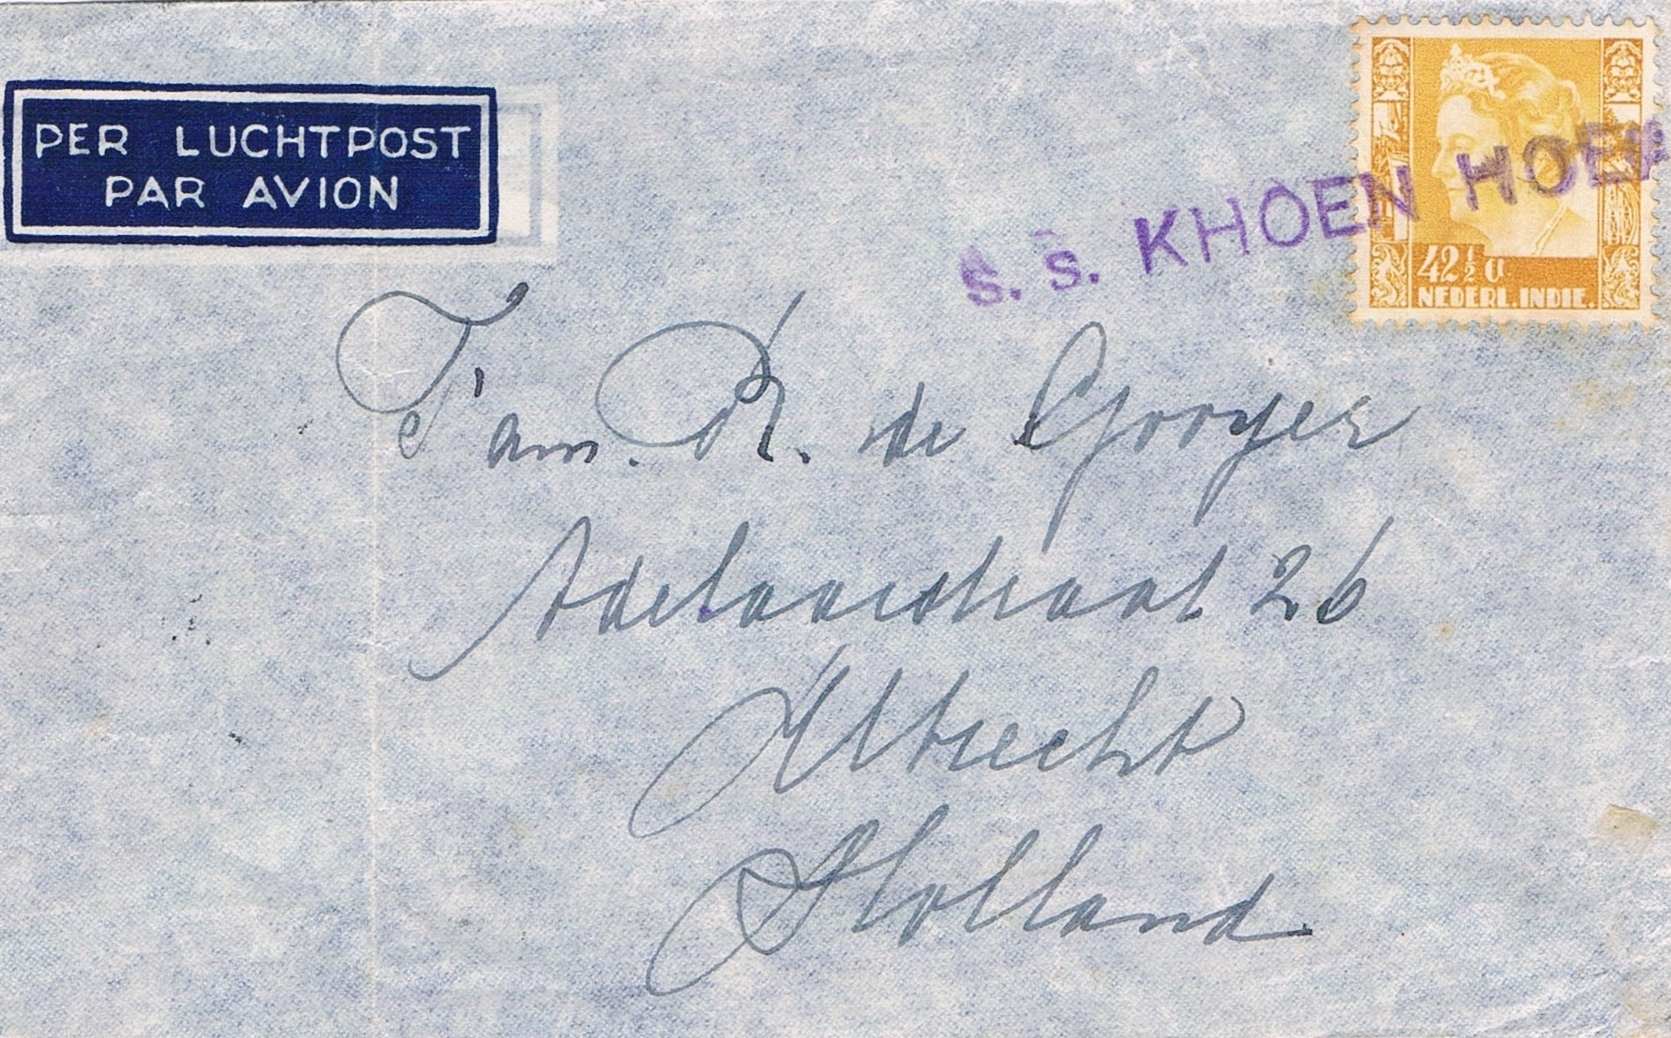 PER LUCHTPOST
PAR AVION
42½ ct
NEDERL. INDIE.
S. S. KHOEN HOEA
Fam. R. de Gooyer
Adelaarstraat 26
Utrecht
Holland